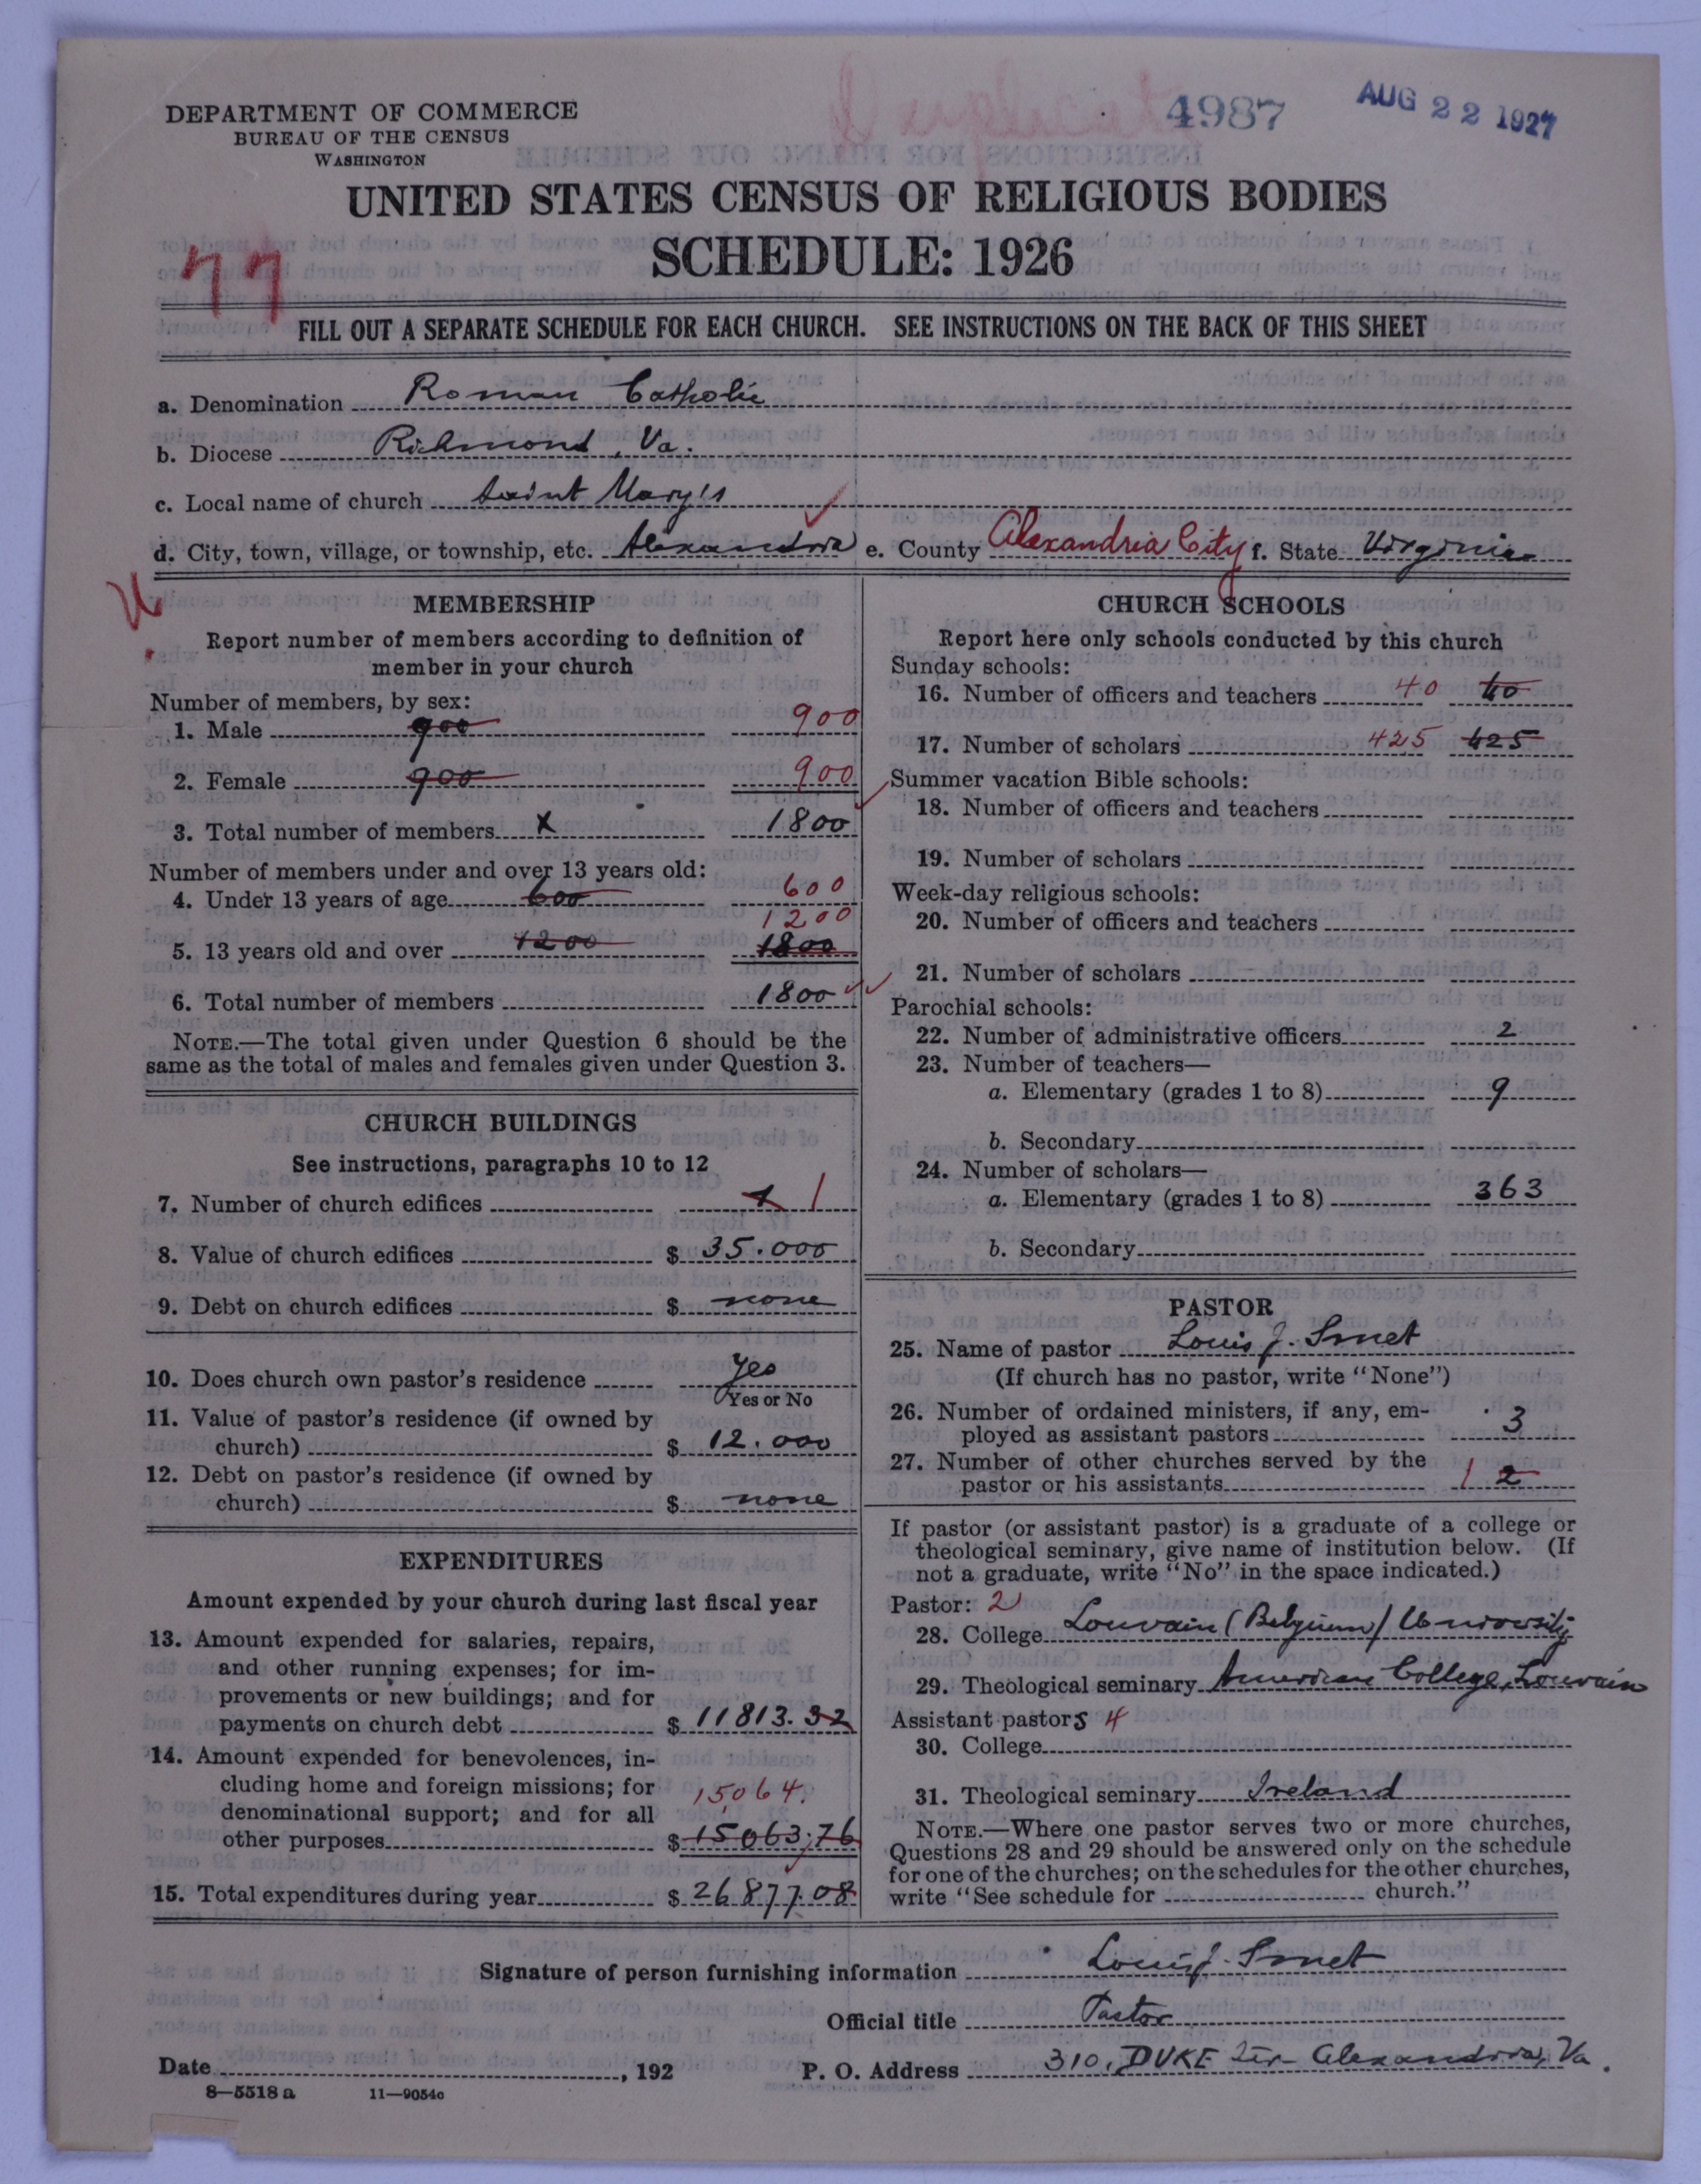 DEPARTMENT OF COMMERCE
BUREAU OF THE CENSUS
WASHINGTON
4987
AUG 22 1927
UNITED STATES CENSUS OF RELIGIOUS BODIES
SCHEDULE: 1926
77
FILL OUT A SEPARATE SCHEDULE FOR EACH CHURCH. SEE INSTRUCTIONS ON THE BACK OF THIS SHEET
a. Denomination Roman Catholic
b. Diocese Richmond, Va.
c. Local name of church Saint Mary's
d. City, town, village, or township, etc. Alexandria e. County Alexandria City f. State Virginia
U
MEMBERSHIP
Report number of members according to definition of
member in your church
Number of members, by sex:
1. Male 900 900
2. Female 900 900
3. Total number of members X 1800
Number of members under and over 13 years old:
4. Under 13 years of age 600 600
1200
5. 13 years old and over 1200 1800
6. Total number of members 1800
NOTE.—The total given under Question 6 should be the
same as the total of males and females given under Question 3.
CHURCH BUILDINGS
See instructions, paragraphs 10 to 12
7. Number of church edifices 1 1
8. Value of church edifices $ 35.000
9. Debt on church edifices $ none
10. Does church own pastor's residence Yes
Yes or No
11. Value of pastor's residence (if owned by
church) $ 12.000
12. Debt on pastor's residence (if owned by
church) $ none
EXPENDITURES
Amount expended by your church during last fiscal year
13. Amount expended for salaries, repairs,
and other running expenses; for im-
provements or new buildings; and for
payments on church debt $ 11813.32
14. Amount expended for benevolences, in-
cluding home and foreign missions; for
15064.
denominational support; and for all
other purposes $ 15063,76
15. Total expenditures during year $ 26877.08
CHURCH SCHOOLS
Report here only schools conducted by this church
Sunday schools:
16. Number of officers and teachers 40 40
17. Number of scholars 425 425
Summer vacation Bible schools:
18. Number of officers and teachers
19. Number of scholars
Week-day religious schools:
20. Number of officers and teachers
21. Number of scholars
Parochial schools:
22. Number of administrative officers 2
23. Number of teachers—
a. Elementary (grades 1 to 8) 9
b. Secondary
24. Number of scholars—
a. Elementary (grades 1 to 8) 363
b. Secondary
PASTOR
25. Name of pastor Louis J. Smet
(If church has no pastor, write "None")
26. Number of ordained ministers, if any, em-
ployed as assistant pastors 3
27. Number of other churches served by the
pastor or his assistants 1 2
If pastor (or assistant pastor) is a graduate of a college or
theological seminary, give name of institution below. (If
not a graduate, write "No" in the space indicated.)
Pastor: 2
28. College Louvain (Belgium) University
29. Theological seminary American College, Louvain
Assistant pastors 4
30. College
31. Theological seminary Ireland
NOTE.—Where one pastor serves two or more churches,
Questions 28 and 29 should be answered only on the schedule
for one of the churches; on the schedules for the other churches,
write "See schedule for church."
Signature of person furnishing information Louis J. Smet
Official title Pastor
Date , 192 P. O. Address 310, DUKE Alexandria, Va.
8—5518 a 11—9054c